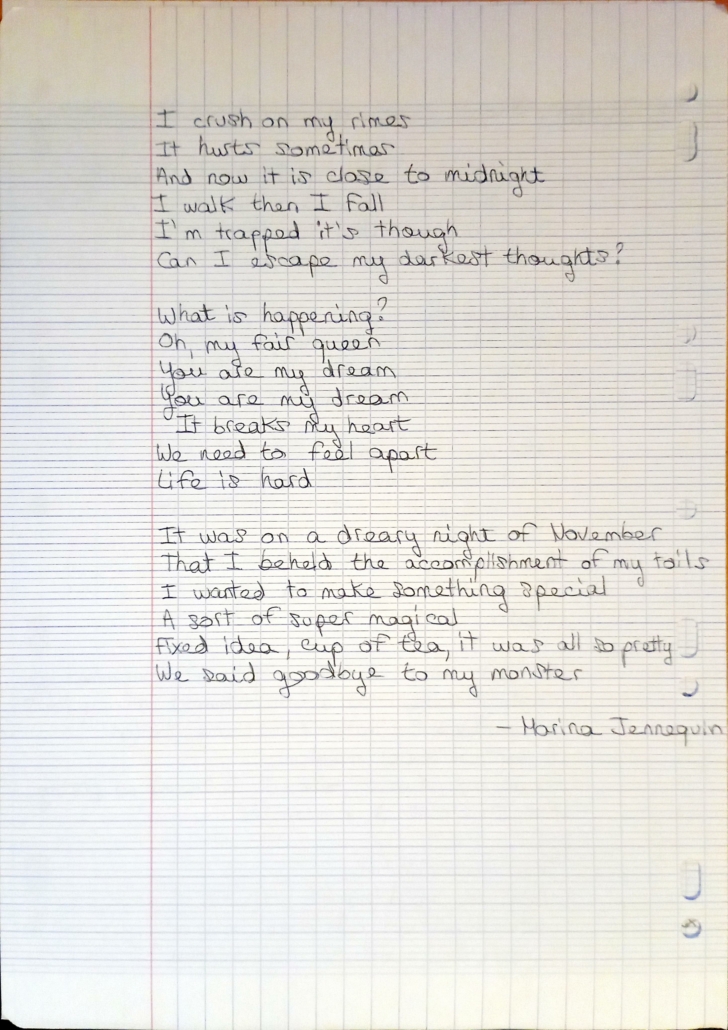 I crush on my rimes
It hurts sometimes
And now it is close to midnight
I walk then I fall
I'm trapped it's though
Can I escape my darkest thoughts?
What is happening?
Oh, my fair queen
You are my dream
You are my dream
It breaks my heart
We need to feel apart
Life is hard
It was on a dreary night of November
That I beheld the accomplishment of my toils
I wanted to make something special
A sort of super magical
Fixed idea, cup of tea, it was all so pretty
We said goodbye to my monster
- Marina Jennequin